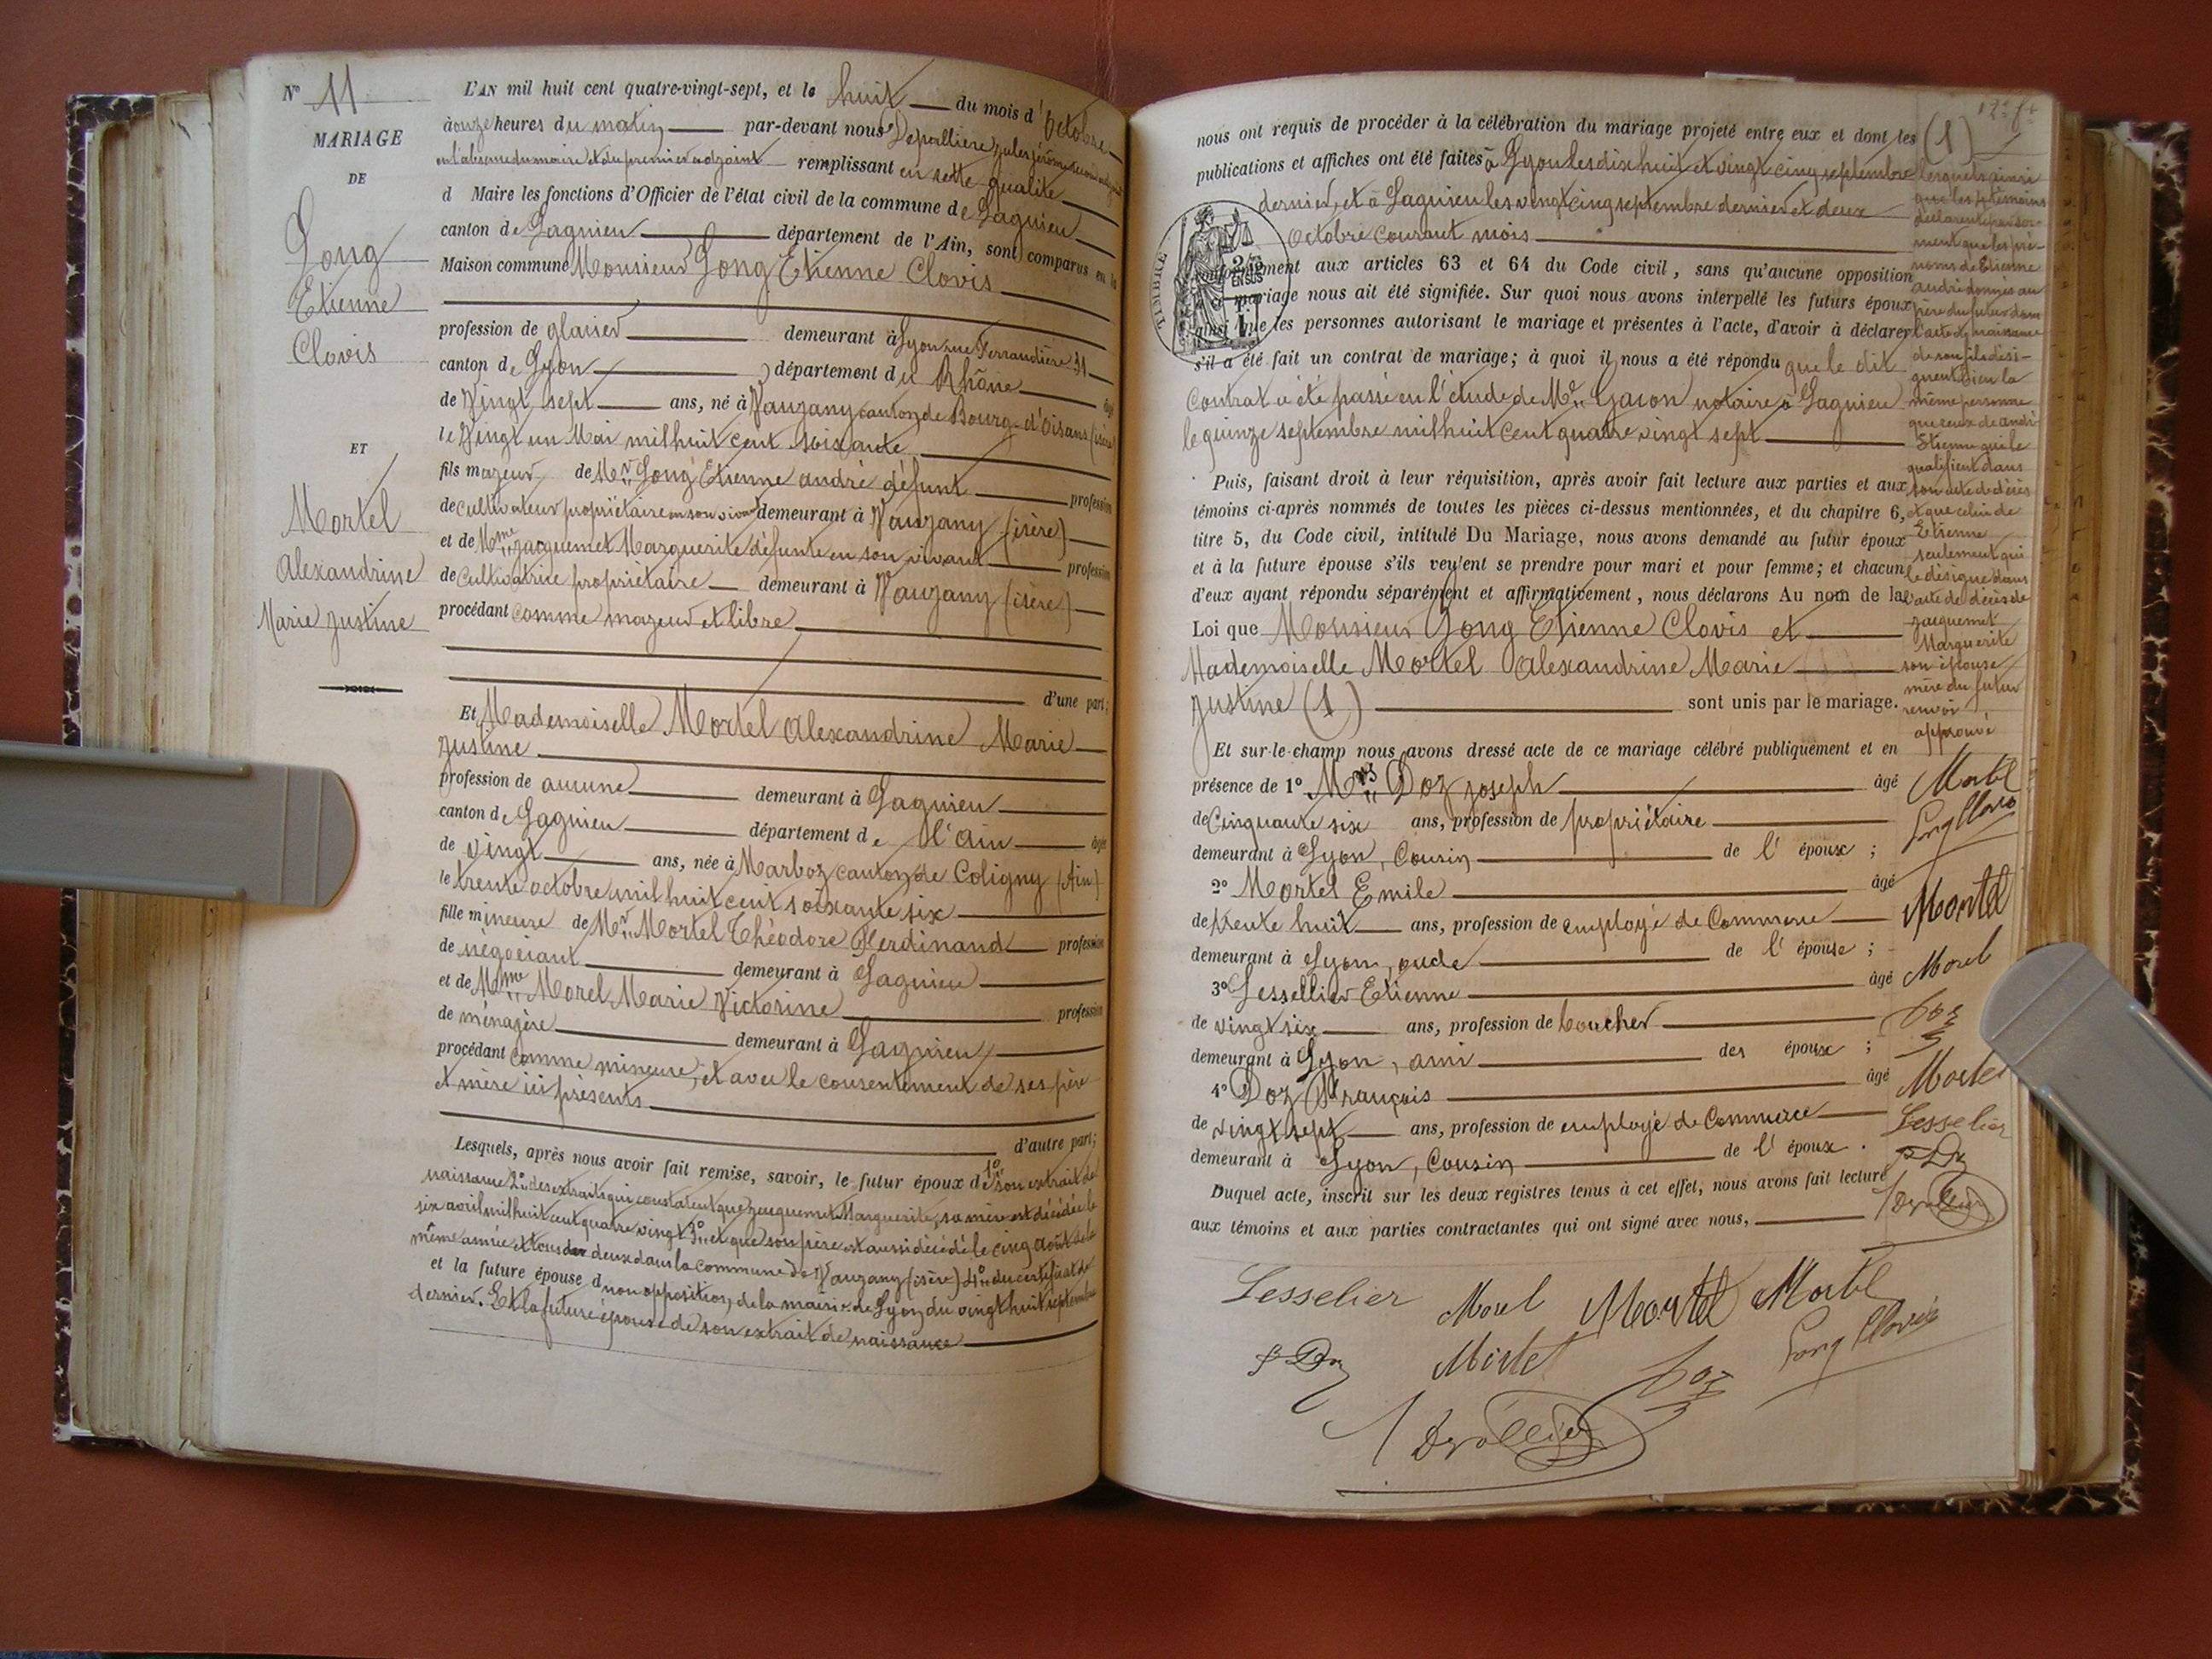 N° 11
MARIAGE
DE
Long
Etienne
Clovis
ET
Mortel
Alexandrine
Marie justine
L'AN mil huit cent quatre-vingt-sept, et le huit du mois d'Octobre
à onze heures du matin par-devant nous Depallière jules jérôme second adjoint
en l'absence du maire et du premier adjoint remplissant en cette qualité
d Maire les fonctions d'Officier de l'état civil de la commune de Lagnieu
canton de Lagnieu département de l'Ain, sont comparus en la
Maison commune Monsieur Long Etienne Clovis
profession de glacier demeurant à Lyon rue Ferrandière 31
canton de Lyon département du Rhône âgé
de Vingt sept ans, né à Vaujany canton de Bourg-d'Oisans (isère)
le Vingt un Mai mil huit cent soixante
fils majeur de Mr Long Etienne andré défunt profession
de cultivateur propriétaire en son vivant demeurant à Vaujany (isère)
et de Mme jacquemet Marguerite défunte en son vivant profession
de Cultivatrice propriétaire demeurant à Vaujany (isère)
procédant comme majeur et libre
d'une part;
Et Mademoiselle Mortel Alexandrine Marie
justine
profession de aucune demeurant à Lagnieu
canton de Lagnieu département de l'Ain âgée
de vingt ans, née à Marboz canton de Coligny (Ain)
le trente octobre mil huit cent soixante six
fille mineure de Mr Mortel Théodore Ferdinand profession
de négociant demeurant à Lagnieu
et de Mme Morel Marie Victorine profession
de ménagère demeurant à Lagnieu
procédant comme mineure, et avec le consentement de ses père
et mère ici présents
d'autre part;
Lesquels, après nous avoir fait remise, savoir, le futur époux de 1° son extrait de
naissance 2° des extraits qui constatent que jacquemet Marguerite, sa mère est décédée le
six avril mil huit cent quatre vingt 3° et que son père est aussi décédé le cinq août de la
même année et tous deux dans la commune de Vaujany (isère) 4° du certificat de
et la future épouse d non opposition de la mairie de Lyon du vingt huit septembre
dernier. Et la future épouse de son extrait de naissance
nous ont requis de procéder à la célébration du mariage projeté entre eux et dont les
publications et affiches ont été faites à Lyon les dix huit et vingt cinq septembre
dernier, et à Lagnieu les vingt cinq septembre dernier et deux
Octobre courant mois
TIMBRE
conformément aux articles 63 et 64 du Code civil, sans qu'aucune opposition
à ce mariage nous ait été signifiée. Sur quoi nous avons interpellé les futurs époux
ainsi que les personnes autorisant le mariage et présentes à l'acte, d'avoir à déclarer
s'il a été fait un contrat de mariage; à quoi il nous a été répondu que le dit
Contrat a été passé en l'étude de Me Gacon notaire à Lagnieu
le quinze septembre mil huit cent quatre vingt sept
Puis, faisant droit à leur réquisition, après avoir fait lecture aux parties et aux
témoins ci-après nommés de toutes les pièces ci-dessus mentionnées, et du chapitre 6,
titre 5, du Code civil, intitulé Du Mariage, nous avons demandé au futur époux
et à la future épouse s'ils veulent se prendre pour mari et pour femme; et chacun
d'eux ayant répondu séparément et affirmativement, nous déclarons Au nom de la
Loi que Monsieur Long Etienne Clovis et
Mademoiselle Mortel Alexandrine Marie
justine (1) sont unis par le mariage.
Et sur-le-champ nous avons dressé acte de ce mariage célébré publiquement et en
présence de 1° Mrs Doz joseph âgé
de Cinquante six ans, profession de propriétaire
demeurant à Lyon, Cousin de l'époux;
2° Mortel Emile âgé
de trente huit ans, profession de employé de Commerce
demeurant à Lyon, oncle de l'épouse;
3° Lessellier Etienne âgé
de vingt six ans, profession de boucher
demeurant à Lyon, ami des époux;
4° Doz François âgé
de vingt sept ans, profession de employé de Commerce
demeurant à Lyon, Cousin de l'époux.
Duquel acte, inscrit sur les deux registres tenus à cet effet, nous avons fait lecture
aux témoins et aux parties contractantes qui ont signé avec nous,
(1)
lesquels ainsi
que les 4 témoins
déclarent par ser-
ment que les pré-
noms de Etienne
andré donnés au
père du futur dans
l'acte de naissance
de son fils dési-
gnent bien la
même personne
que ceux de andré
Etienne qui le
qualifient dans
son acte de décès
et que celui de
Etienne
seulement qui
le désigne dans
l'acte de décès de
jacquemet
Marguerite
son épouse
mère du futur
renvoi
approuvé
Mortel
Long Clovis
Mortel
Morel
Doz
Mortel
Lesselier
F Doz
Lesselier Morel Mortel Mortel
F Doz Mortel Doz Long Clovis